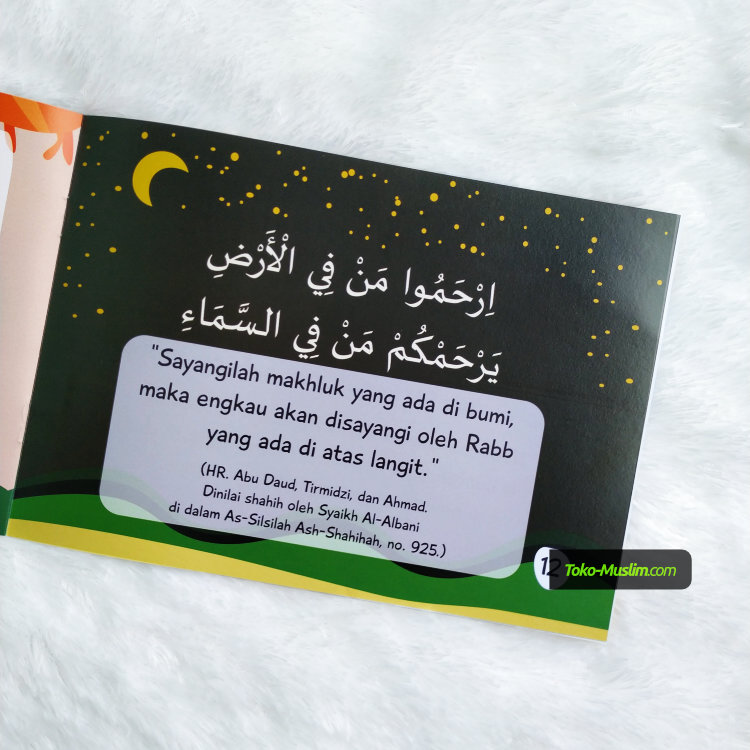 اِرْحَمُوا مَنْ فِي الْأَرْضِ
يَرْحَمْكُمْ مَنْ فِي السَّمَاءِ
"Sayangilah makhluk yang ada di bumi,
maka engkau akan disayangi oleh Rabb
yang ada di atas langit."
(HR. Abu Daud, Tirmidzi, dan Ahmad.
Dinilai shahih oleh Syaikh Al-Albani
di dalam As-Silsilah Ash-Shahihah, no. 925.)
12
Toko-Muslim.com